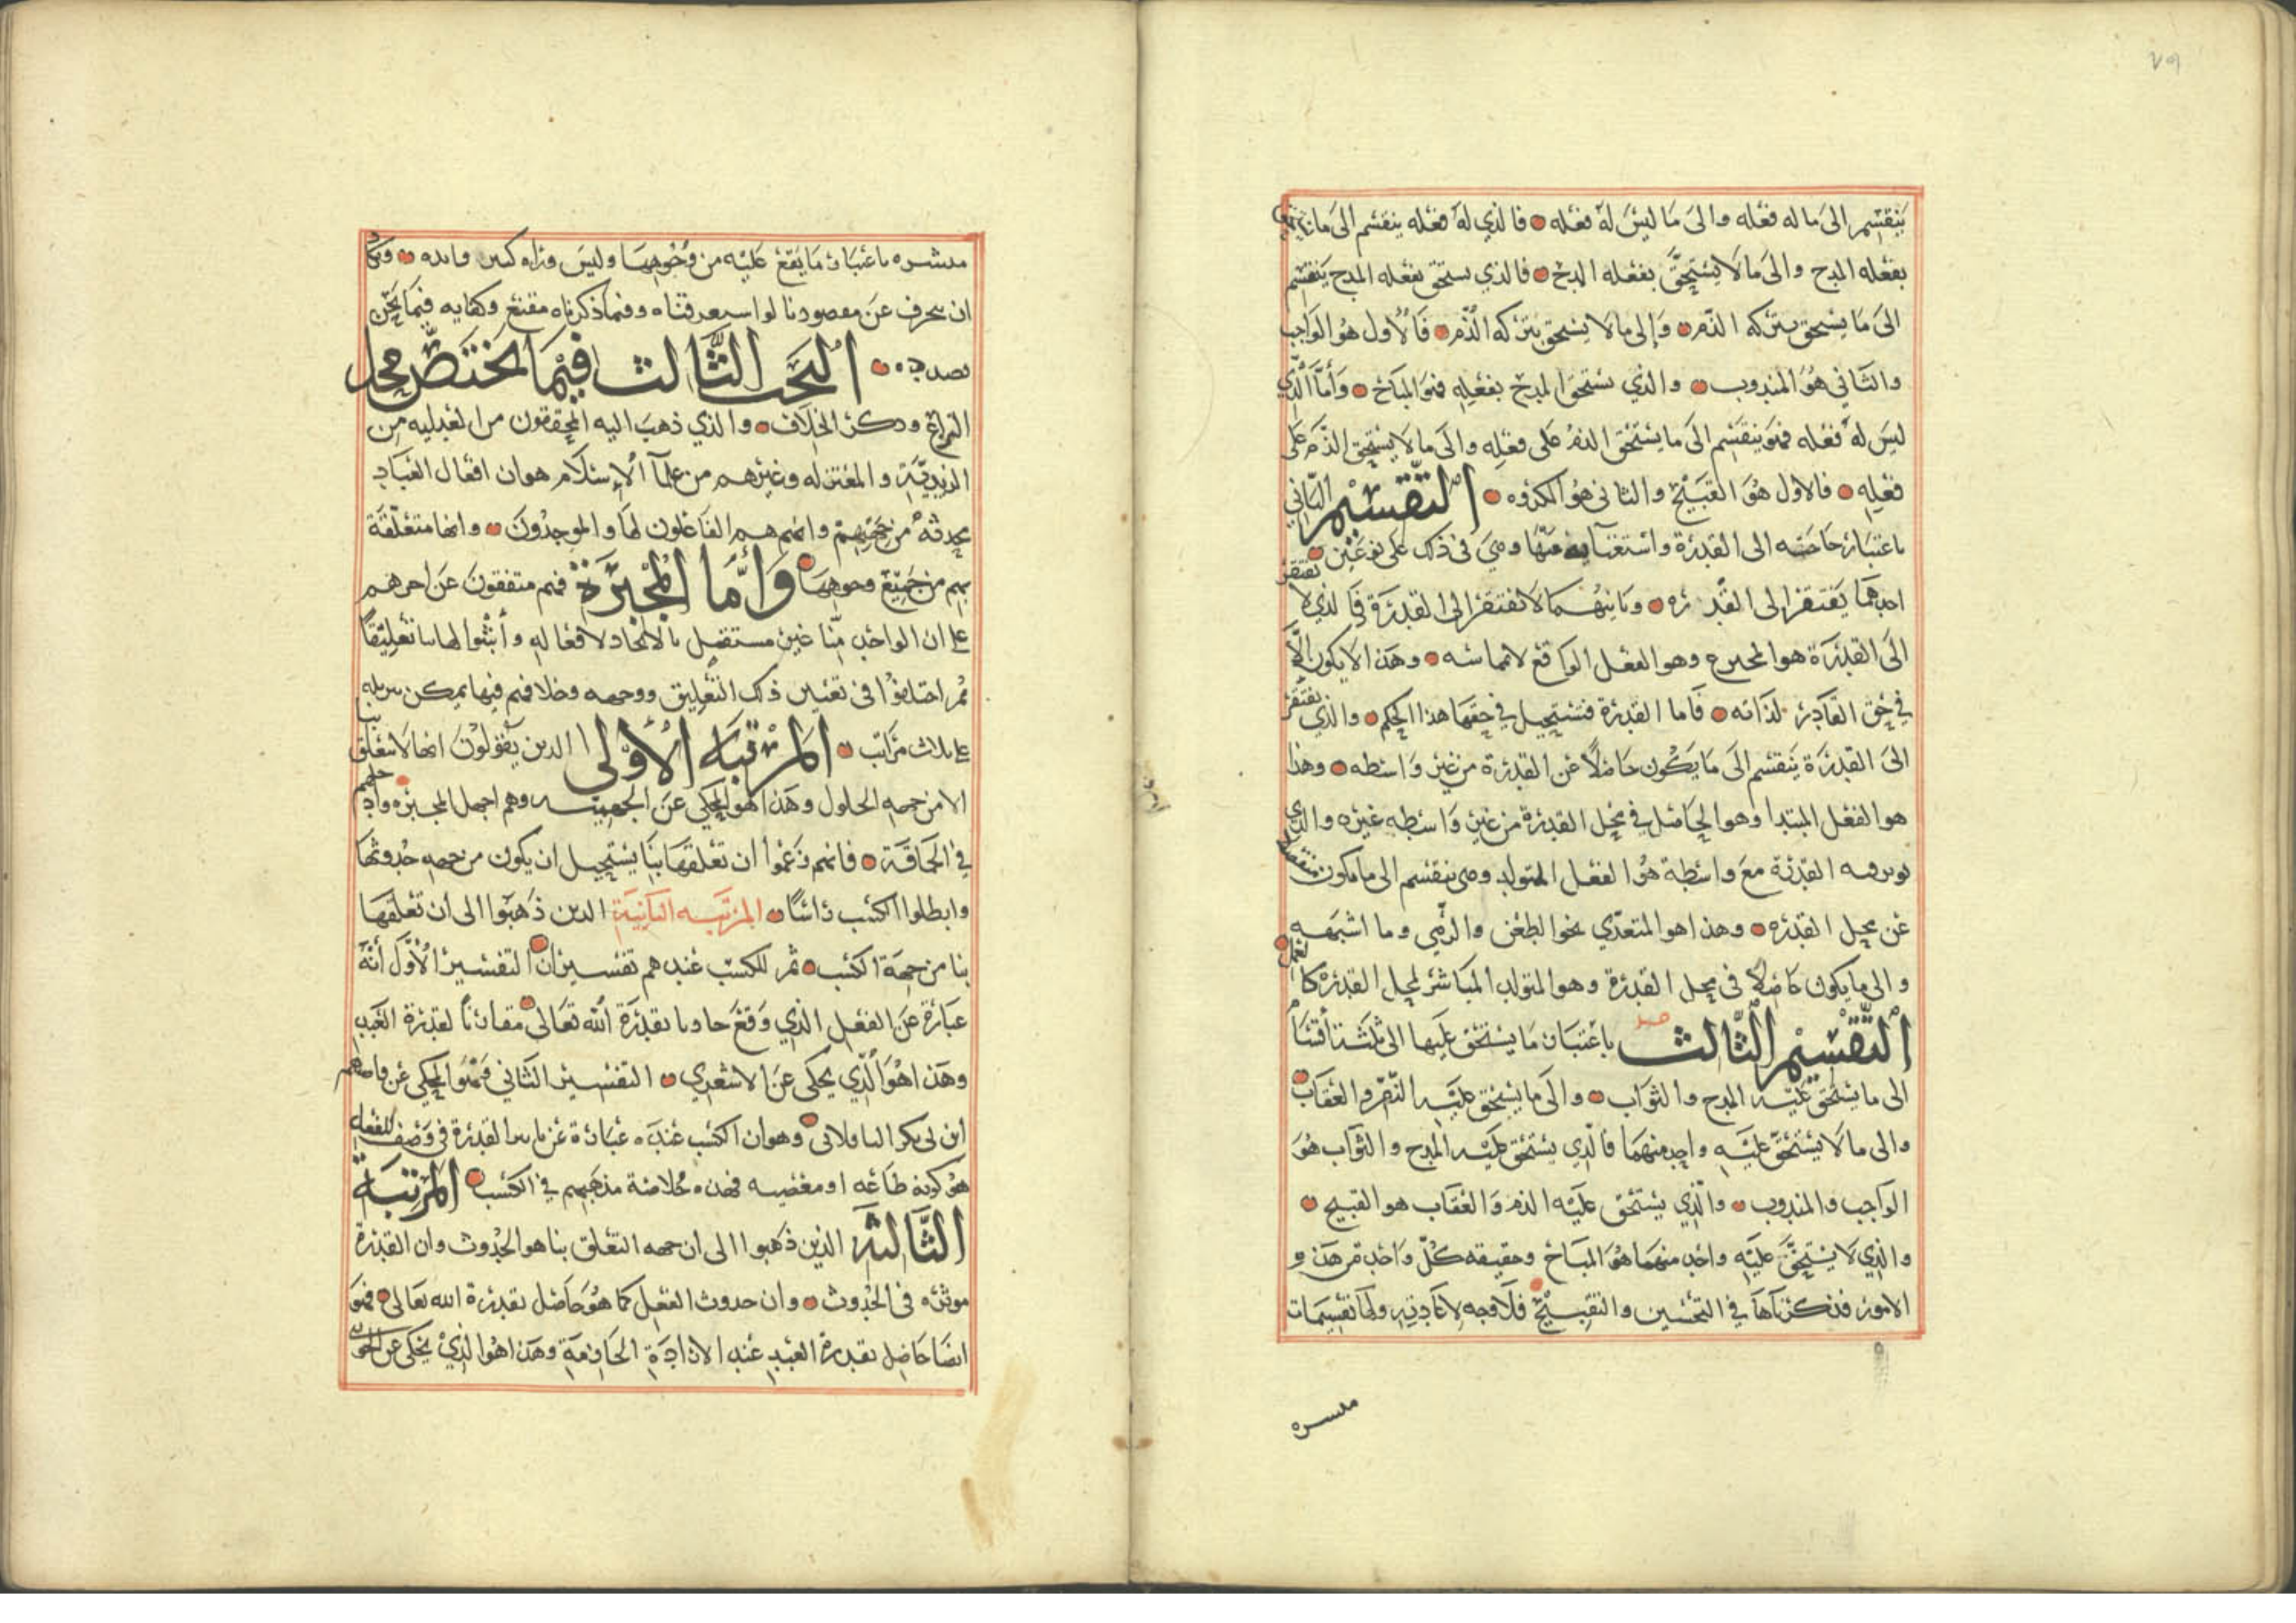 ٧٩
ينقسم الى ما له فعله والى ما ليس له فعله فالذي له فعله ينقسم الى ما يستحق
بفعله المدح والى ما لا يستحق بفعله المدح فالذي يستحق بفعله المدح ينقسم
الى ما يستحق بتركه الذم والى ما لا يستحق بتركه الذم فالأول هو الواجب
والثاني هو المندوب والذي يستحق المدح بفعله فهو المباح وأما الذي
ليس له فعله فهو ينقسم الى ما يستحق الذم على فعله والى ما لا يستحق الذم على
فعله فالاول هو القبيح والثاني هو المكروه التقسيم الثاني
باعتبار حاجته الى القدرة واستغنايه عنها وهي في ذلك على نوعين
احدهما يفتقر الى القدره وثانيهما لا يفتقر الى القدرة فالذي لا يفتقر
الى القدرة هو المخترع وهو الفعل الواقع لا مماسه وهذا لا يكون الا
في حق القادر لذاته فاما القدرة فتستحيل في حقها هذا الحكم والذي يفتقر
الى القدرة ينقسم الى ما يكون حاصلا عن القدرة من غير واسطه وهذا
هو الفعل المبتدا وهو الحاصل في محل القدرة من غير واسطه غيره والذي
توثر فيه القدرة مع واسطة هو الفعل المتولد وهي تنقسم الى ما يكون منفصلا
عن محل القدره وهذا هو المتعدي نحو الطعن والرمي وما اشبهه
والى ما يكون حاصلا في محل القدرة وهو المتولد المباشر لمحل القدرة كالعلم
التقسيم الثالث باعتبار ما يستحق عليها الى ثلثة أقسام
الى ما يستحق عليه المدح والثواب والى ما يستحق عليه الذم والعقاب
والى ما لا يستحق عليه واحد منهما فالذي يستحق عليه المدح والثواب هو
الواجب والمندوب والذي يستحق عليه الذم والعقاب هو القبيح
والذي لا يستحق عليه واحد منهما هو المباح وحقيقه كل واحد من هذه
الامور قد ذكرناها في التحسين والتقبيح فلا وجه لاعادته ولها تقسيمات
منتشره
منتشره باعتبار ما يقع عليه من وجوهها وليس وراه كبير فايده
ان ينحرف عن مقصودنا لو استغرقناه وفيما ذكرناه مقنع وكفايه فيما نحن
بصدده البحث الثالث فيما يختص محل
النزاع وذكر الخلاف والذي ذهب اليه المحققون من العدليه من
الزيدية والمعتزله وغيرهم من علمآ الإسلام هو ان افعال العباد
محدثة من جهتهم وانهم هم الفاعلون لها والموجدون وانها متعلقة
بهم من جميع وجوهها وأما المجبرة فهم متفقون عن اخرهم
على ان الواحد منا غير مستقل بالاتحاد لافعاله وأثبتوا لها بنا تعليقا
ثم اختلفوا في تعيين ذلك التعليق ووجهه وخلافهم فيها يمكن تنزيله
على ثلاث مراتب المرتبة الأولى الذين يقولون انها لا تتعلق بنا
الا من جهه الحلول وهذا هو المحكي عن الجهميه وهم اجهل المجبره وادخلهم
في الحماقة فانهم زعموا ان تعلقها بنا يستحيل ان يكون من جهه حدوثها
وابطلوا الكسب راسًا المرتبه الثانية الذين ذهبوا الى أن تعلقها
بنا من جهة الكسب ثم للكسب عندهم تفسيران التفسير الأول أنه
عبارة عن الفعل الذي وقع حادثا بقدرة الله تعالى مقارنًا لقدرة العبد
وهذا هو الذي يحكى عن الاشعري التفسير الثاني فهو المحكي عن قاضيهم
ابن ابي بكر الباقلاني وهو ان الكسب عنده عبارة عن تاثير القدرة في وصف للفعل
هو كونه طاعه او معصيه فهذه خلاصة مذهبهم في الكسب المرتبة
الثالثة الذين ذهبوا الى ان جهه التعلق بنا هو الحدوث وان القدرة
موثره في الحدوث وان حدوث الفعل كما هو حاصل بقدرة الله تعالى فهو
ايضا حاصل بقدرة العبد عند الارادة الجازمة وهذا هو الذي يحكى عن